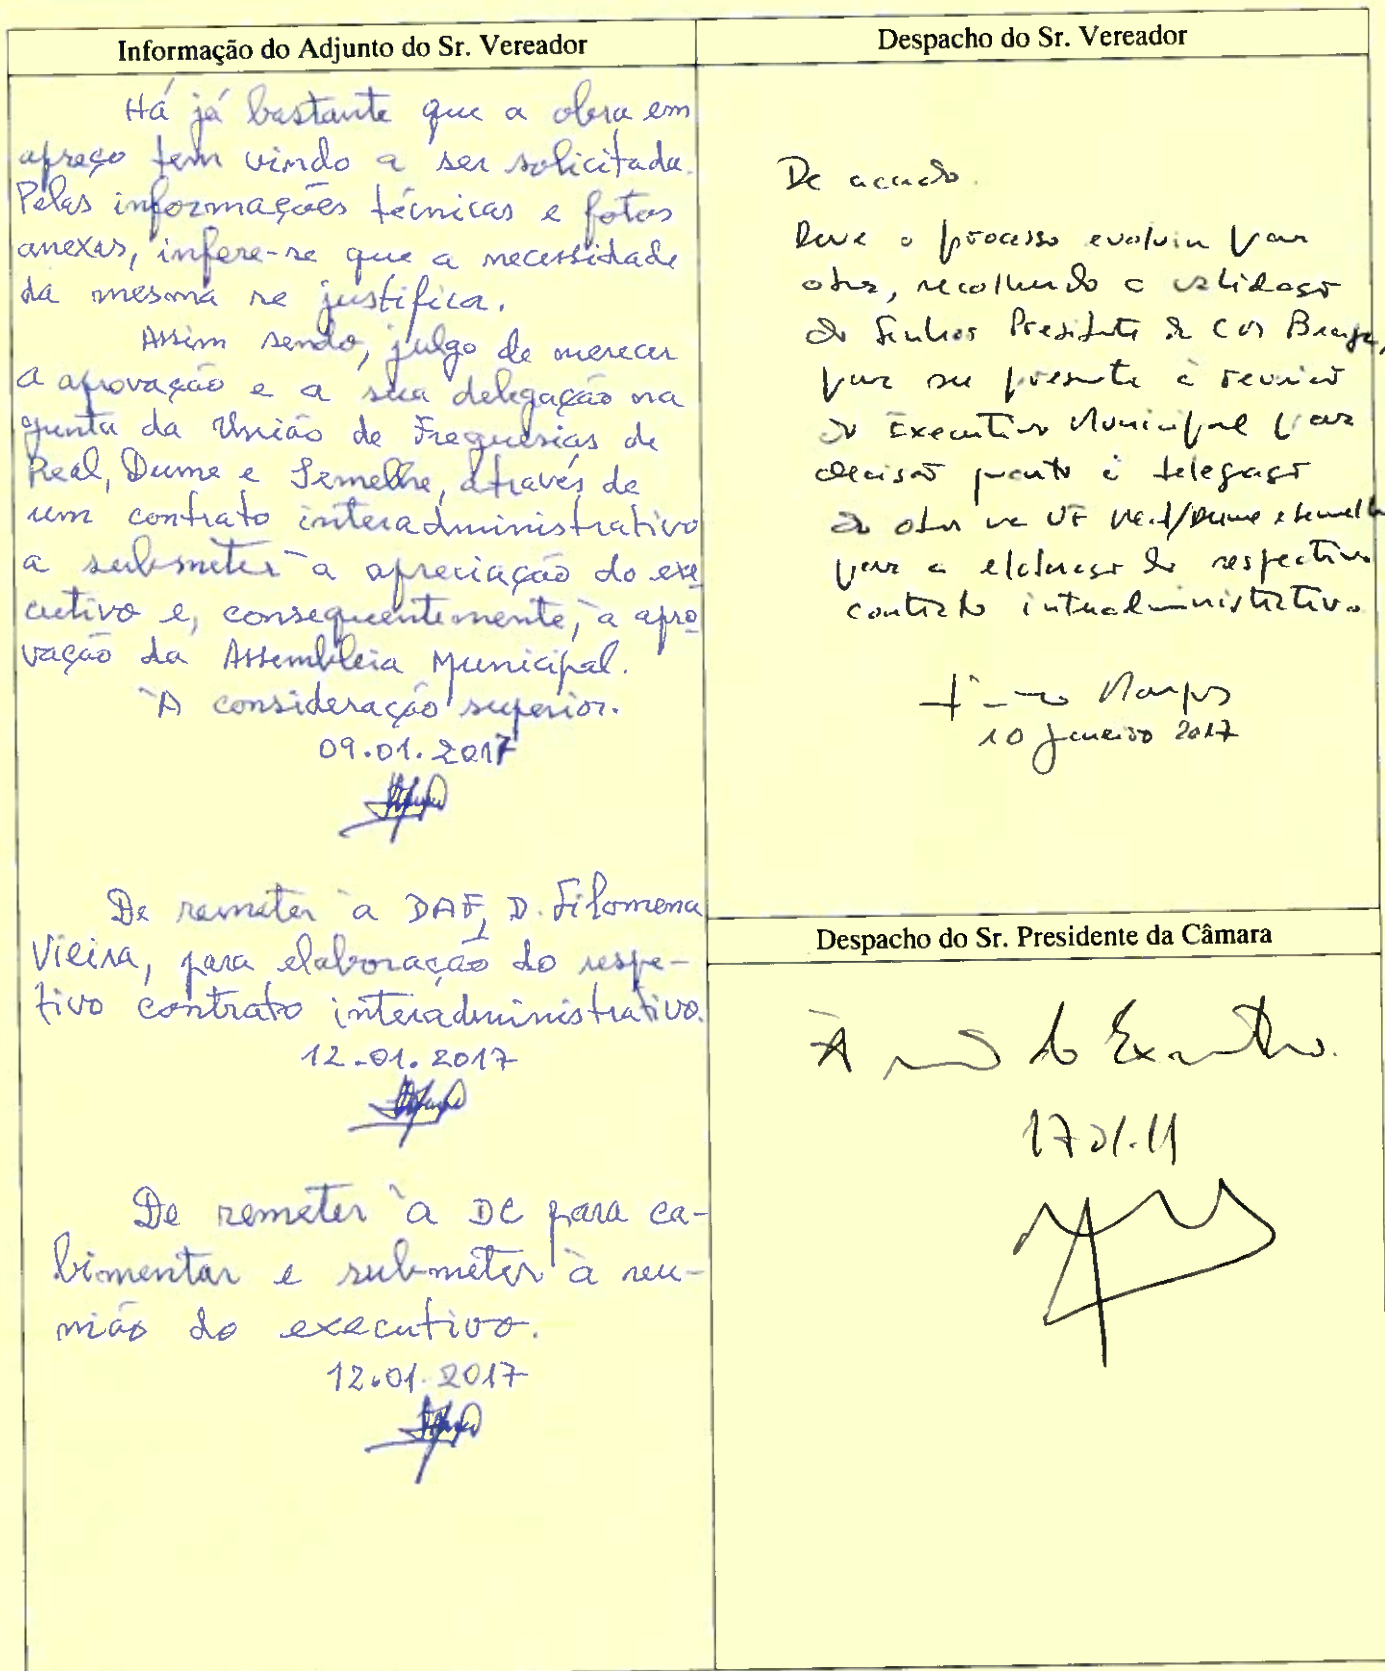 Informação do Adjunto do Sr. Vereador
Há já bastante que a obra em
apreço tem vindo a ser solicitada.
Pelas informações técnicas e fotos
anexas, infere-se que a necessidade
da mesma se justifica.
Assim sendo, julgo de merecer
a aprovação e a sua delegação na
Junta da União de Freguesias de
Real, Dume e Semelhe, através de
um contrato interadministrativo
a submeter à apreciação do exe
cutivo e, consequentemente, à apro
vação da Assembleia Municipal.
À consideração superior.
09.01.2017
De remeter à DAF, D. Filomena
Vieira, para elaboração do respe-
tivo contrato interadministrativo.
12-01.2017
De remeter à DC para ca-
bimentar e submeter à reu-
nião do executivo.
12.01.2017
Despacho do Sr. Vereador
De acordo.
Deve o processo evoluir para
obra, recolhendo a validação
do Senhor Presidente da CM Braga,
para ser presente à reunião
do Executivo Municipal para
decisão quanto à delegação
da obra na UF Real/Dume e Semelhe
para a elaboração do respectivo
contrato interadministrativo
10 Janeiro 2017
Despacho do Sr. Presidente da Câmara
À do Executivo.
17.01.11